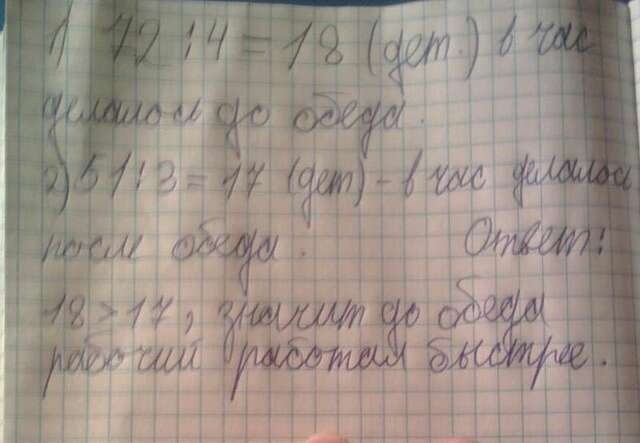 1) 72 : 4 = 18 (дет.) в час
делалось до обеда.
2) 51 : 3 = 17 (дет) - в час делалось
после обеда. Ответ:
18 > 17, значит до обеда
рабочий работал быстрее.